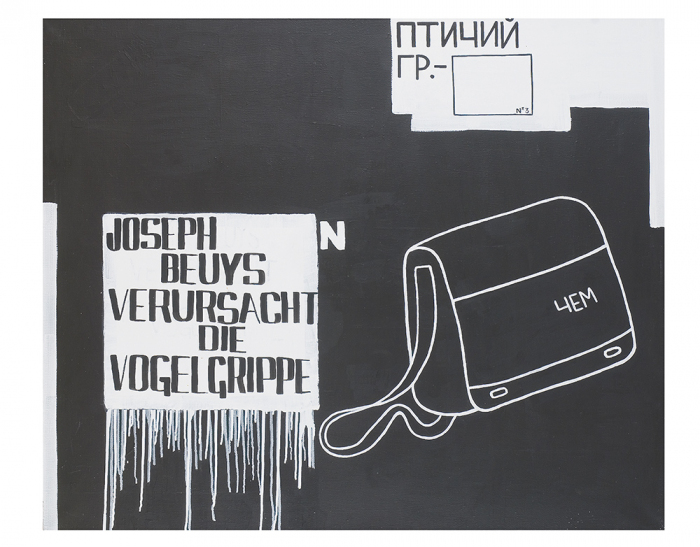 ПТИЧИЙ
ГР.-
№3
JOSEPH
BEUYS
VERURSACHT
DIE
VOGELGRIPPE
N
ЧЕМ